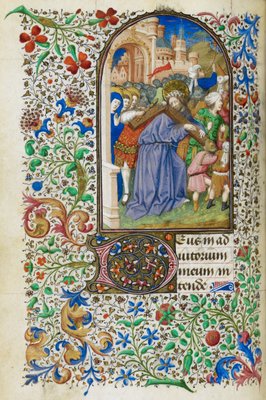 Deus in ad
iutorium
meum in
tende